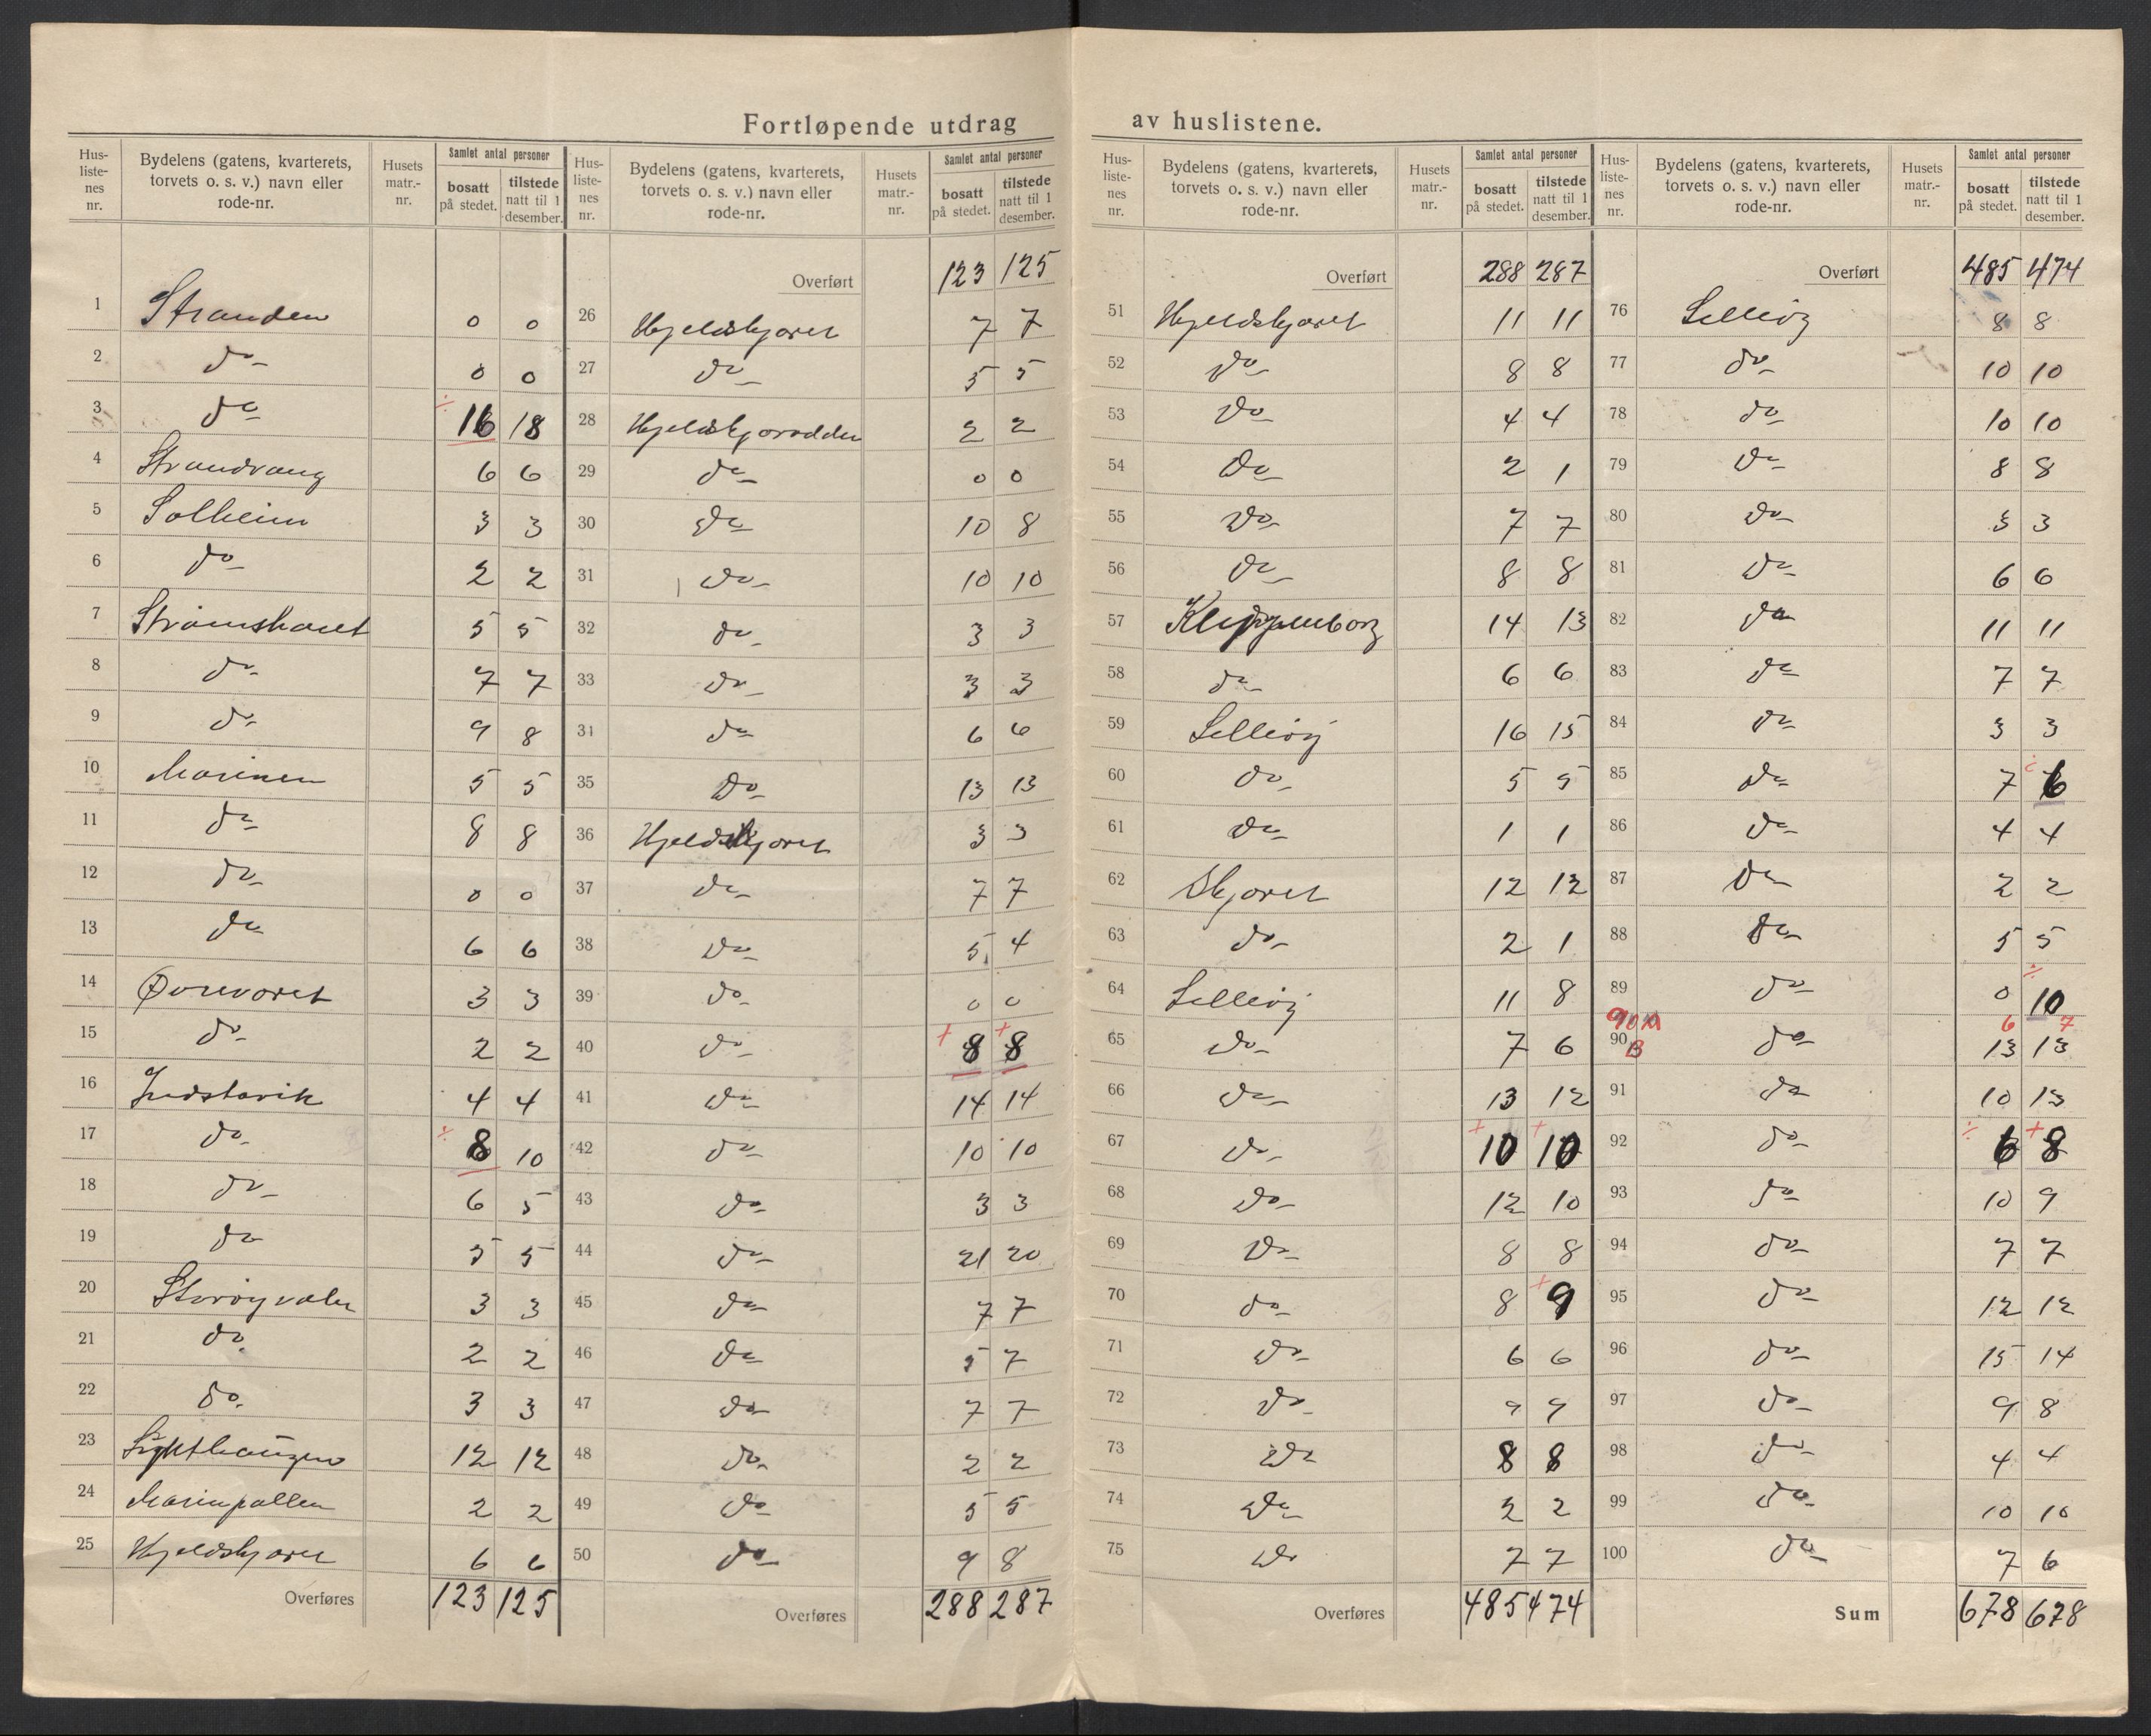 Fortløpende utdrag av huslistene.
Hus-
liste-
nes
nr.
Bydelens (gatens, kvarterets,
torvets o. s. v.) navn eller
rode-nr.
Husets
matr.-
nr.
Samlet antal personer
bosatt
på stedet.
tilstede
natt til 1
desember.
1 Stranden 0 0
2 do 0 0
3 do ÷ 16 18
4 Strandvang 6 6
5 Solheim 3 3
6 do 2 2
7 5 5
8 do 7 7
9 do 9 8
10 Marinen 5 5
11 do 8 8
12 do 0 0
13 do 6 6
14 Øvrevoret 3 3
15 do 2 2
16 Indstavik 4 4
17 do ÷ 8 10
18 do 6 5
19 do 5 5
20 3 3
21 do 2 2
22 do 3 3
23 12 12
24 Marinpollen 2 2
25 Hjeldskjoret 6 6
Overføres 123 125
Hus-
liste-
nes
nr.
Bydelens (gatens, kvarterets,
torvets o. s. v.) navn eller
rode-nr.
Husets
matr.-
nr.
Samlet antal personer
bosatt
på stedet.
tilstede
natt til 1
desember.
Overført 123 125
26 Hjeldskjoret 7 7
27 do 5 5
28 Hjeldskjorodden 2 2
29 do 0 0
30 do 10 8
31 do 10 10
32 do 3 3
33 do 3 3
31 do 6 6
35 do 13 13
36 Hjeldskjoret 3 3
37 do 7 7
38 do 5 4
39 do 0 0
40 do + 8 + 8
41 do 14 14
42 do 10 10
43 do 3 3
44 do 21 20
45 do 7 7
46 do 5 7
47 do 7 7
48 do 2 2
49 do 5 5
50 do 9 8
Overføres 288 287
Hus-
liste-
nes
nr.
Bydelens (gatens, kvarterets,
torvets o. s. v.) navn eller
rode-nr.
Husets
matr.-
nr.
Samlet antal personer
bosatt
på stedet.
tilstede
natt til 1
desember.
Overført 288 287
51 Hjeldskjoret 11 11
52 do 8 8
53 do 4 4
54 do 2 1
55 do 7 7
56 do 8 8
57 Klippenborg 14 13
58 do 6 6
59 Lilleøy 16 15
60 do 5 5
61 do 1 1
62 Skjoret 12 12
63 do 2 1
64 Lilleøy 11 8
65 do 7 6
66 do 13 12
67 do + 10 + 10
68 do 12 10
69 do 8 8
70 do 8 + 9
71 do 6 6
72 do 9 9
73 do 8 8
74 do 2 2
75 do 7 7
Overføres 485 474
Hus-
liste-
nes
nr.
Bydelens (gatens, kvarterets,
torvets o. s. v.) navn eller
rode-nr.
Husets
matr.-
nr.
Samlet antal personer
bosatt
på stedet.
tilstede
natt til 1
desember.
Overført 485 474
76 Lilleøy 8 8
77 do 10 10
78 do 10 10
79 do 8 8
80 do 3 3
81 do 6 6
82 do 11 11
83 do 7 7
84 do 3 3
85 do 7 6
86 do 4 4
87 do 2 2
88 do 5 5
89 do 0 ÷ 10
90 A 6 7
90 B do 13 13
91 do 10 13
92 do ÷ 6 + 8
93 do 10 9
94 do 7 7
95 do 12 12
96 do 15 14
97 do 9 8
98 do 4 4
99 do 10 10
100 do 7 6
Sum 678 678